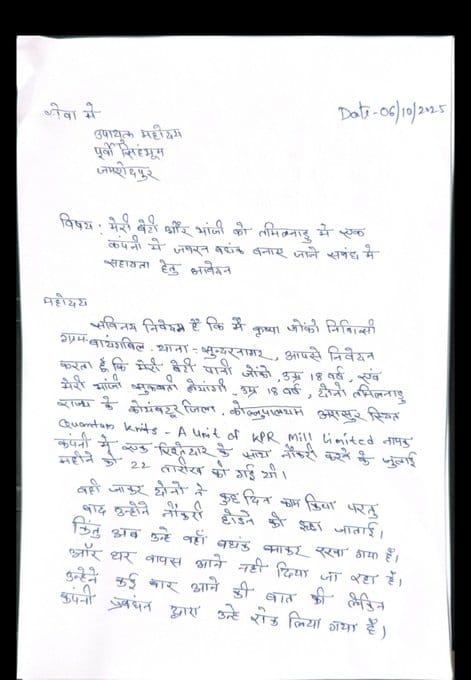 सेवा में Date-06/10/2025
उपायुक्त महोदय
पूर्वी सिंहभूम
जमशेदपुर
विषय: मेरी बेटी और भांजी को तमिलनाडु में एक
कंपनी में जबरन बंधक बनाए जाने संबंध में
सहायता हेतु आवेदन
महोदय
सविनय निवेदन है कि मैं कृष्णा जोंको निवासी
ग्राम- थाना- सुन्दरनगर, आपसे निवेदन
करता हूँ कि मेरी बेटी पानी जोंको, उम्र 18 वर्ष, एवं
मेरी भांजी सुकमती उम्र 18 वर्ष, दोनों तमिलनाडु
राज्य के कोयंबटूर जिला, अरासुर स्थित
Quantum Knits - A Unit of KPR Mill Limited नामक
कंपनी में एक रिश्तेदार के साथ नौकरी करने के जुलाई
महीने की 22 तारीख को गई थी।
वहां जाकर दोनों ने कुछ दिन काम किया परंतु
बाद उन्होंने नौकरी छोड़ने की इच्छा जताई।
किंतु अब उन्हें वहाँ बंधक बनाकर रखा गया है।
और घर वापस आने नहीं दिया जा रहा है।
उन्होंने कई बार आने की बात की लेकिन
कंपनी प्रबंधन द्वारा उन्हें रोक लिया गया है।